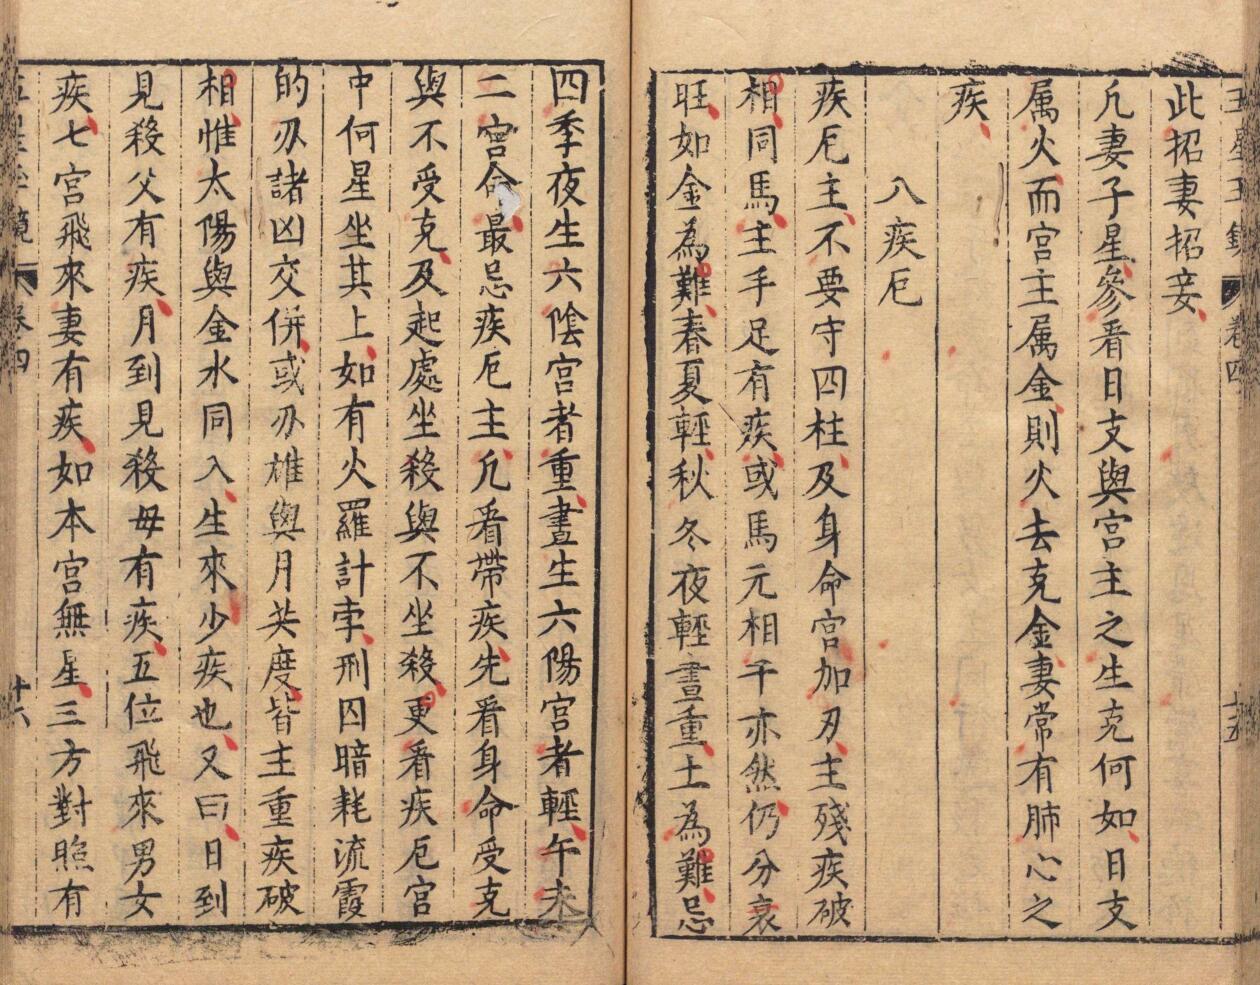 此招妻招妾
凢妻子星參看日支與宮主之生克何如日支
属火而宮主属金則火去克金妻常有肺心之
疾
八疾厄
疾厄主不要守四柱及身命宮加刃主殘疾破
相同馬主手足有疾或馬元相干亦然仍分衰
旺如金為難春夏輕秋冬夜輕晝重土為難忌
四季夜生六陰宮者重晝生六陽宮者輕午未
二宮命最忌疾厄主凢看帶疾先看身命受克
與不受克及起處坐殺與不坐殺更看疾厄宮
中何星坐其上如有火羅計孛刑囚暗耗流霞
的刃諸凶交併或刃雄與月共度皆主重疾破
相惟太陽與金水同入生來少疾也又曰日到
見殺父有疾月到見殺母有疾五位飛來男女
疾七宮飛來妻有疾如本宮無星三方對照有
卷四
十六